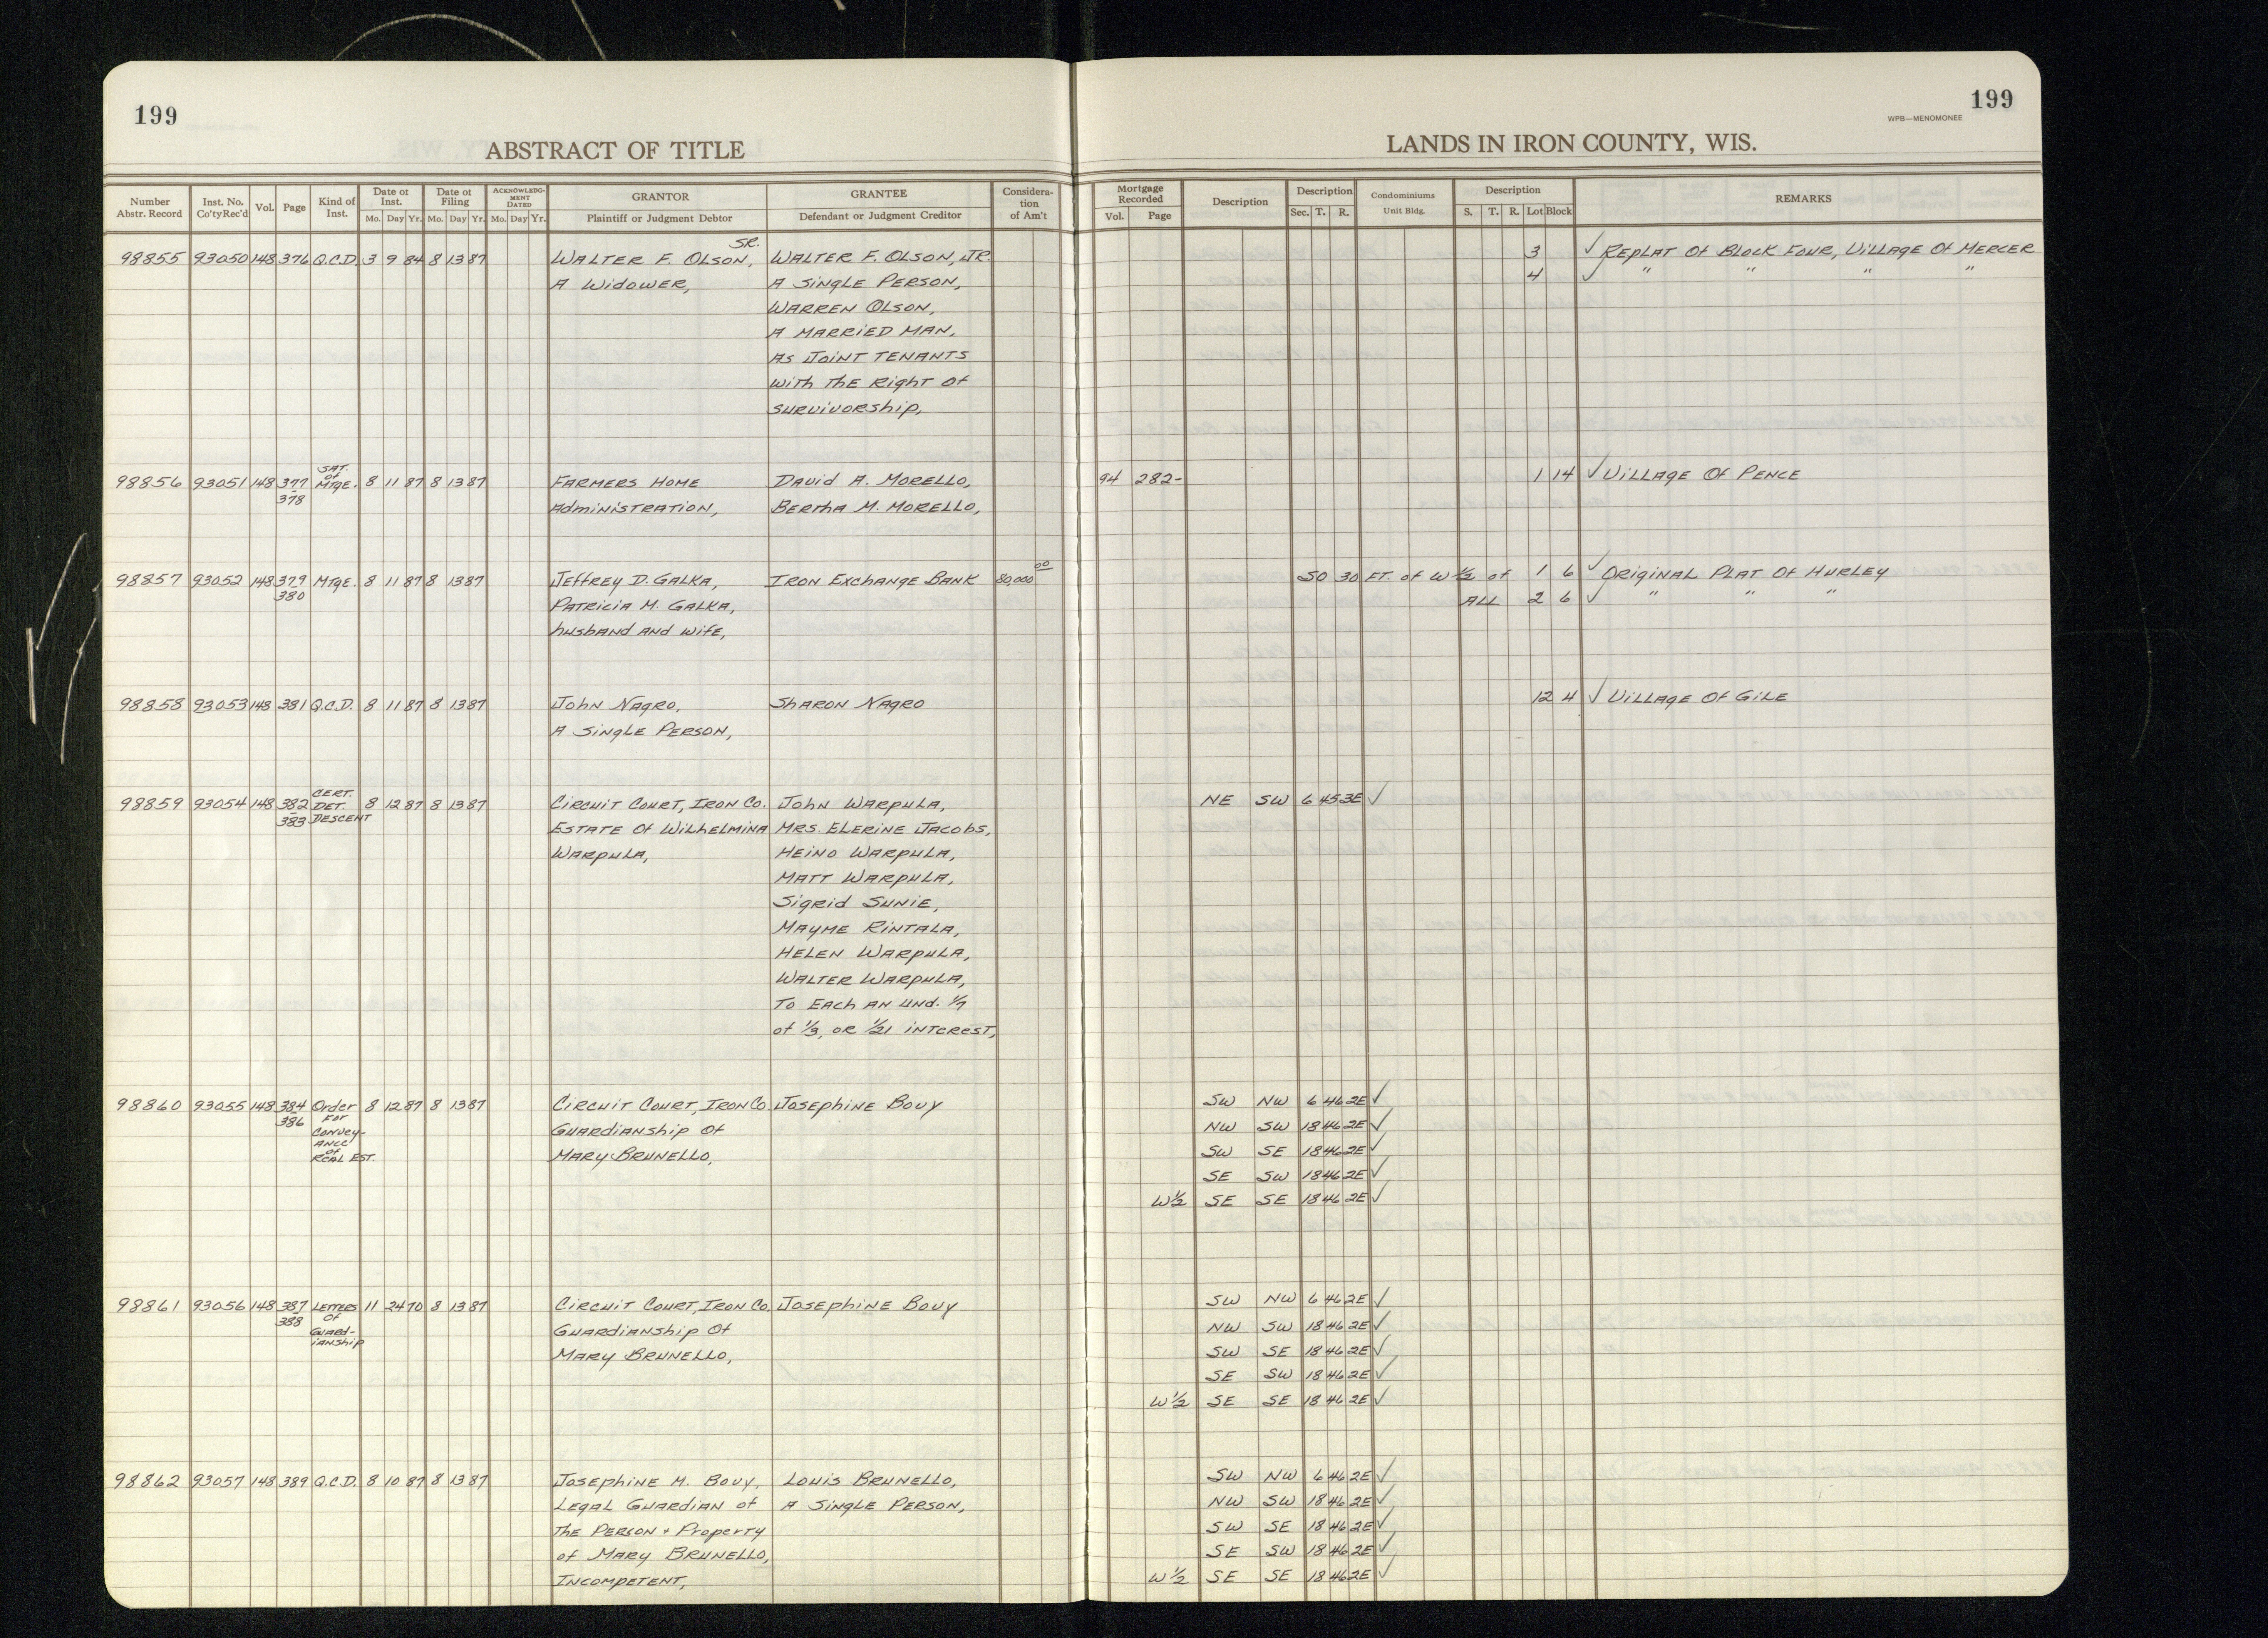 199
199
WPB—MENOMONEE
ABSTRACT OF TITLE
LANDS IN IRON COUNTY, WIS.
Number Abstr. Record | Inst. No. Co'ty Rec'd | Vol. | Page | Kind of Inst. | Date of Inst. Mo. Day Yr. | Date of Filing Mo. Day Yr. | ACKNOWLEDGMENT DATED Mo. Day Yr. | GRANTOR Plaintiff or Judgment Debtor | GRANTEE Defendant or Judgment Creditor | Consideration of Am't | Mortgage Recorded Vol. Page | Description | Description Sec. T. R. | Condominiums Unit Bldg. | Description S. T. R. Lot Block | REMARKS
SR.
98855 93050 148 376 Q.C.D. 3 9 84 8 13 87 WALTER F. OLSON, WALTER F. OLSON, JR. 3 ✓ REPLAT Of BLOCK FOUR, VILLAGE Of MERCER
A WIDOWER, A SINGLE PERSON, 4 ✓ " " " "
WARREN OLSON,
A MARRIED MAN,
AS JOINT TENANTS
WITH THE RIGHT Of
SURVIVORSHIP,
98856 93051 148 377-378 SAT. of MTGE. 8 11 87 8 13 87 FARMERS HOME DAVID A. MORELLO, 94 282- 1 14 ✓ VILLAGE Of PENCE
ADMINISTRATION, BERTHA M. MORELLO,
98857 93052 148 379-380 MTGE. 8 11 87 8 13 87 JEFFREY D. GALKA, IRON EXCHANGE BANK 80,000 00 SO 30 FT. of W 1/2 of 1 6 ✓ ORIGINAL PLAT Of HURLEY
PATRICIA M. GALKA, ALL 2 6 ✓ " " "
HUSBAND AND WIFE,
98858 93053 148 381 Q.C.D. 8 11 87 8 13 87 JOHN NAGRO, SHARON NAGRO 12 4 ✓ VILLAGE Of GILE
A SINGLE PERSON,
98859 93054 148 382-383 CERT. DET. DESCENT 8 12 87 8 13 87 CIRCUIT COURT, IRON CO. JOHN WARPULA, NE SW 6 45 3E ✓
ESTATE Of WILHELMINA MRS. ELERINE JACOBS,
WARPULA, HEINO WARPULA,
MATT WARPULA,
SIGRID SUNIE,
MAYME RINTALA,
HELEN WARPULA,
WALTER WARPULA,
TO EACH AN UND. 1/7
of 1/3, OR 1/21 INTEREST,
98860 93055 148 384-386 Order For Convey-ance of REAL EST. 8 12 87 8 13 87 CIRCUIT COURT, IRON CO. JOSEPHINE BOUY SW NW 6 46 2E ✓
GUARDIANSHIP Of NW SW 18 46 2E ✓
MARY BRUNELLO, SW SE 18 46 2E ✓
SE SW 18 46 2E ✓
W 1/2 SE SE 18 46 2E ✓
98861 93056 148 387-388 LETTERS Of GUARD-IANSHIP 11 24 70 8 13 87 CIRCUIT COURT, IRON CO. JOSEPHINE BOUY SW NW 6 46 2E ✓
GUARDIANSHIP Of NW SW 18 46 2E ✓
MARY BRUNELLO, SW SE 18 46 2E ✓
SE SW 18 46 2E ✓
W 1/2 SE SE 18 46 2E ✓
98862 93057 148 389 Q.C.D. 8 10 87 8 13 87 JOSEPHINE M. BOUY, LOUIS BRUNELLO, SW NW 6 46 2E ✓
LEGAL GUARDIAN of A SINGLE PERSON, NW SW 18 46 2E ✓
THE PERSON + PROPERTY SW SE 18 46 2E ✓
of MARY BRUNELLO, SE SW 18 46 2E ✓
INCOMPETENT, W 1/2 SE SE 18 46 2E ✓